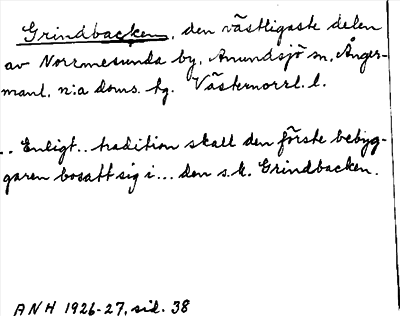 Grindbacken, den västligaste delen
av Norrmesunda by, Anundsjö sn, Ånger-
manl. n:a doms. hg. Västernorrl. l.
.. Enligt.. tradition skall den förste bebyg-
garen bosatt sig i... den s.k. Grindbacken.
ANH 1926-27, sid. 38